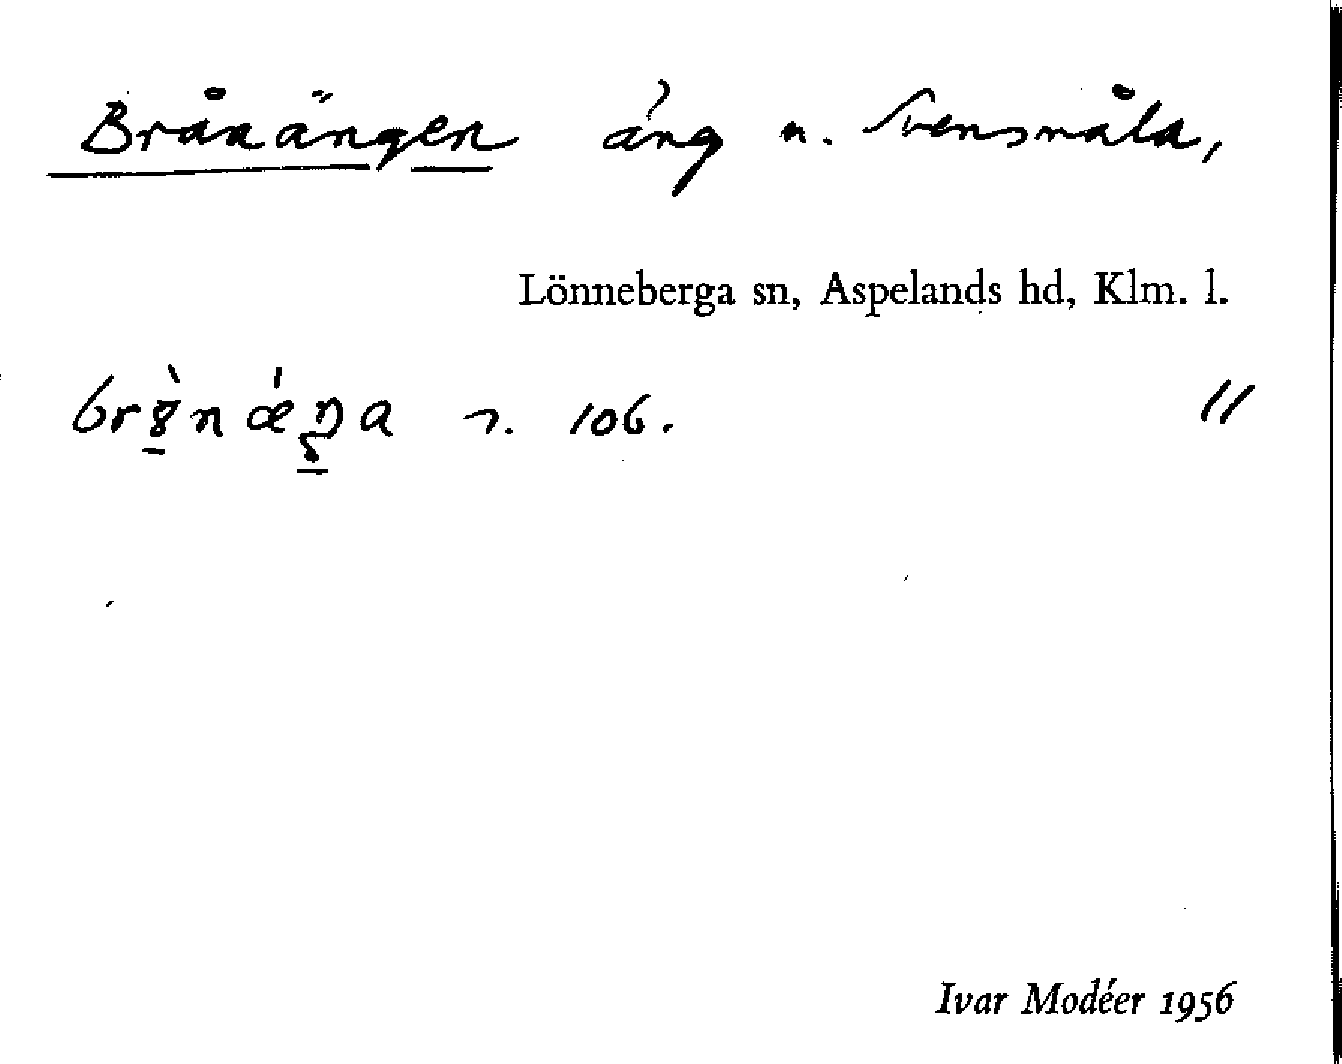 Brånängen äng n. Svensmåla,
Lönneberga sn, Aspelands hd, Klm. l.
106. //
Ivar Modéer 1956